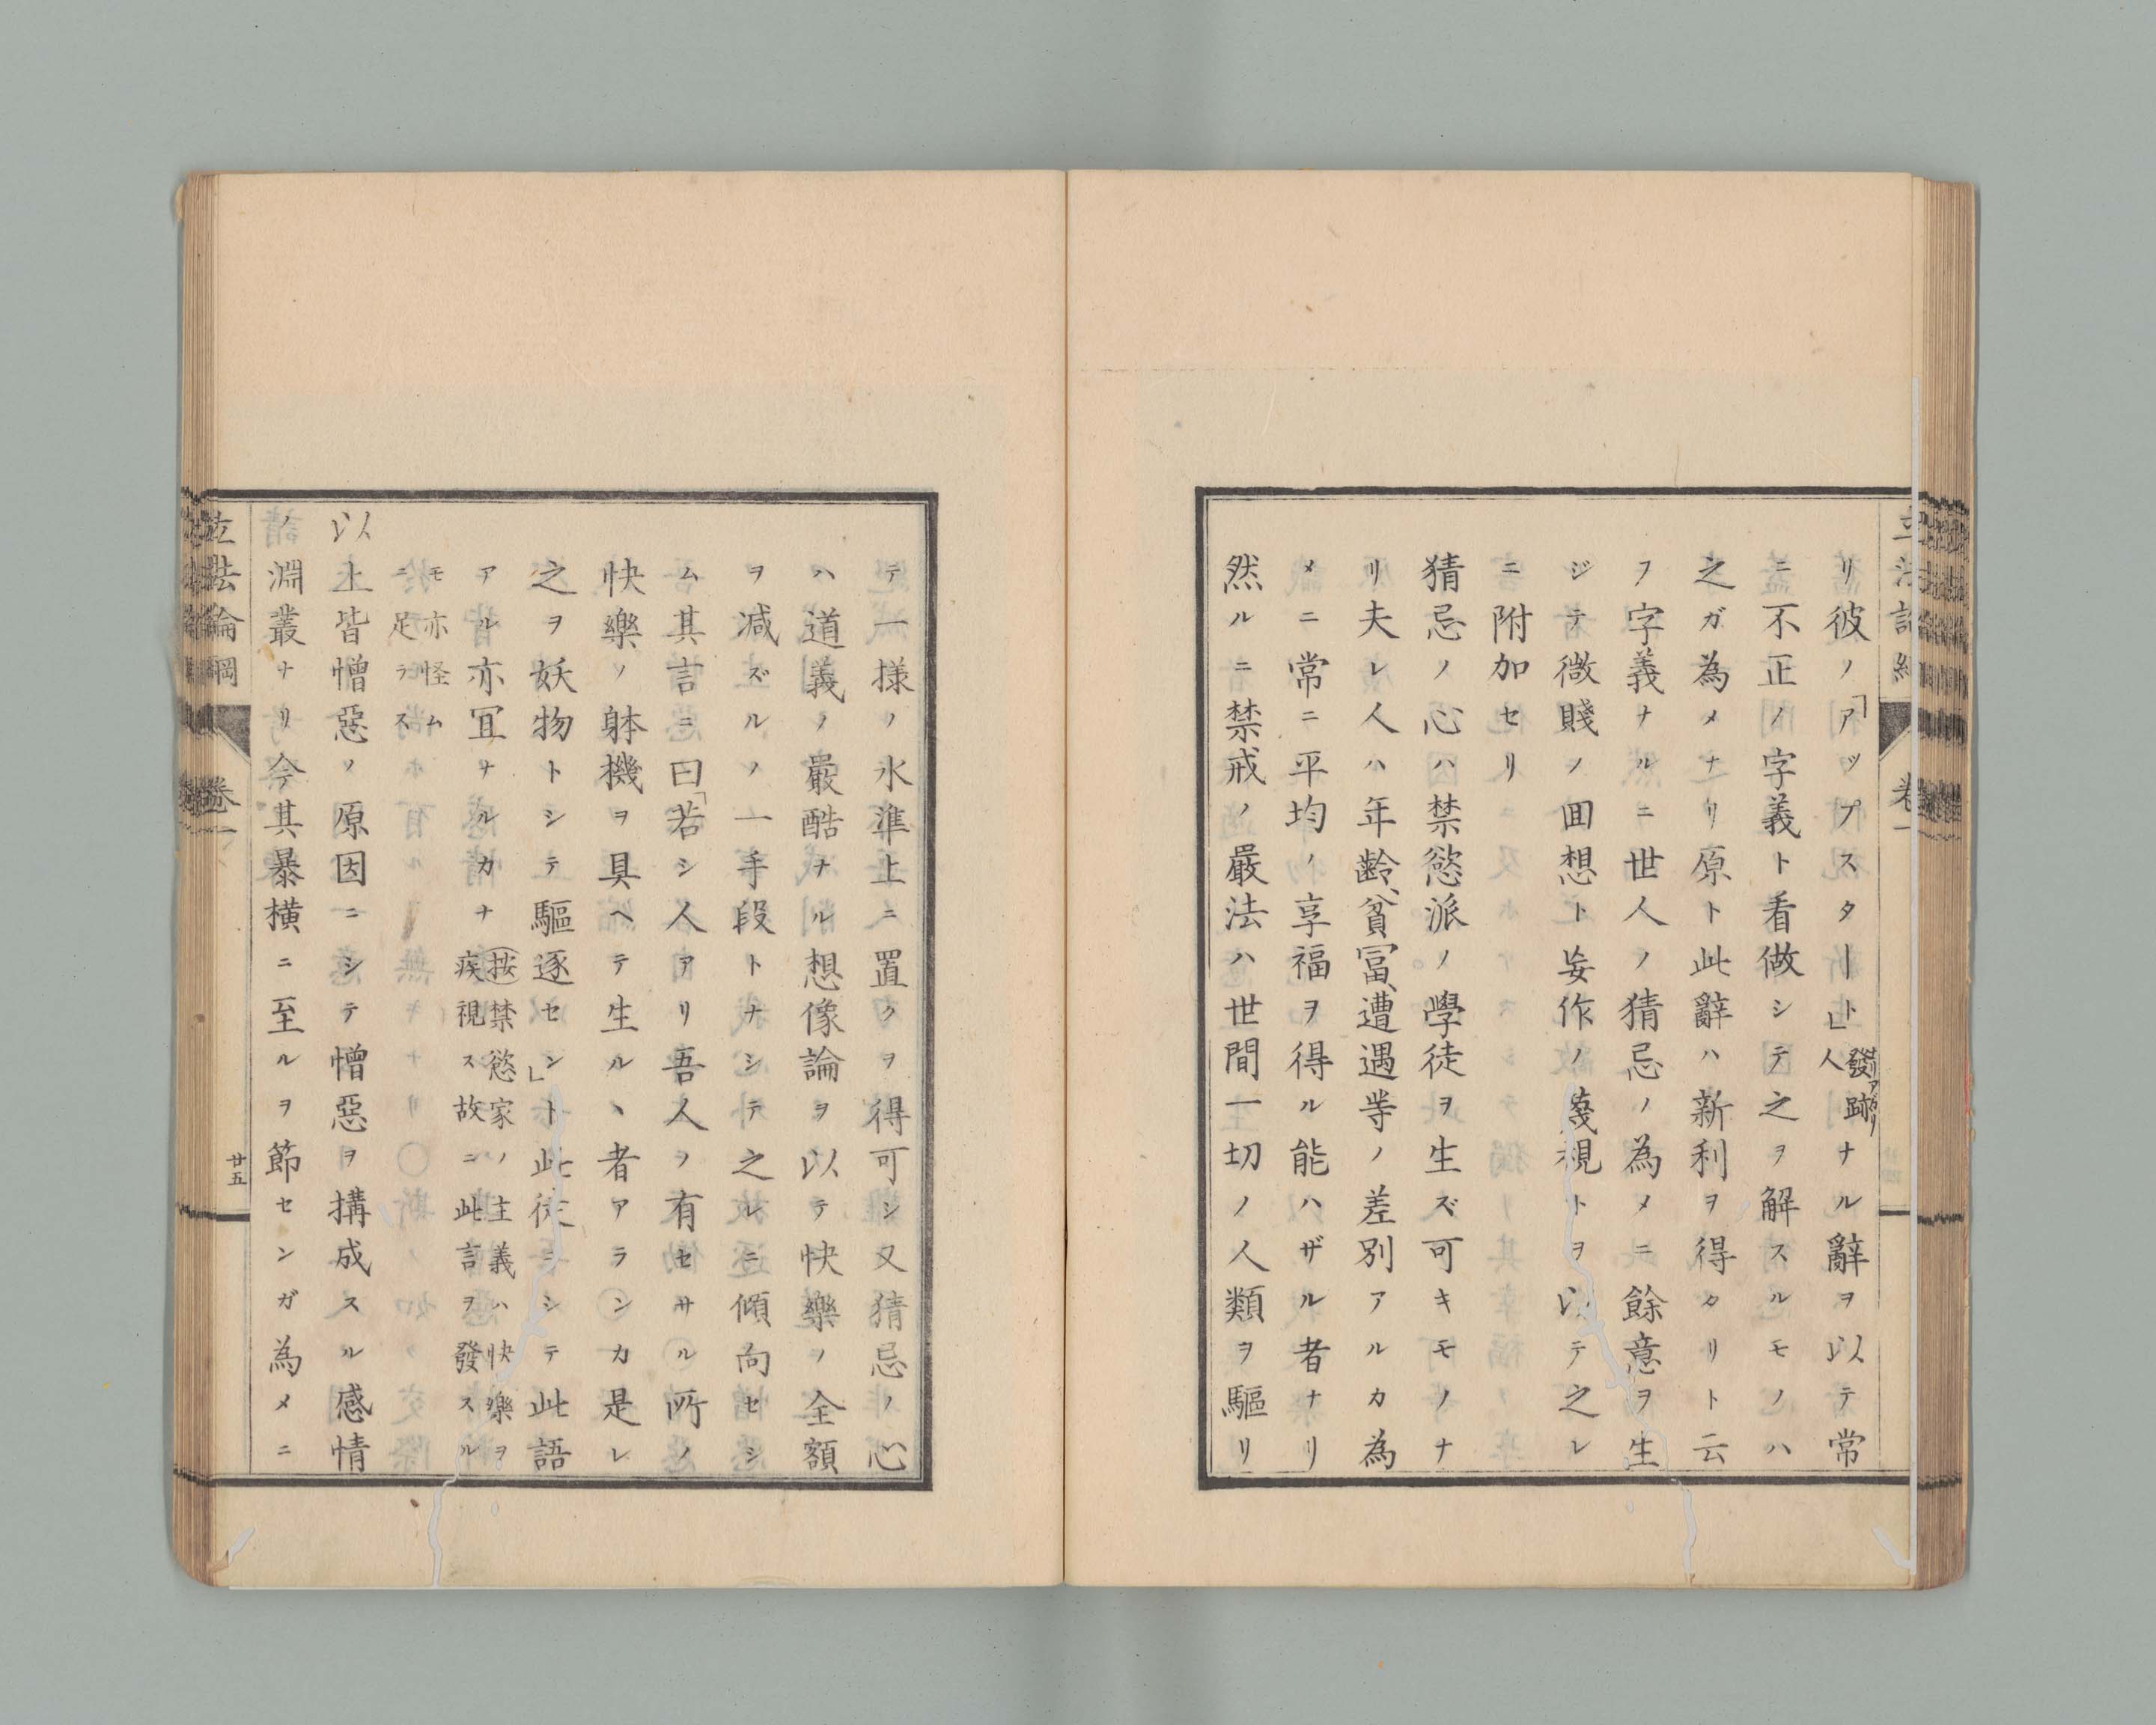 リ彼ノ「アップスタート」發跡人ナル辭ヲ以テ常
ニ不正ノ字義ト看做シテ之ヲ解スルモノハ
之ガ為メナリ原ト此辭ハ新利ヲ得タリト云
フ字義ナルニ世人ノ猜忌ノ為メニ餘意ヲ生
ジテ微賤ノ回想ト妄作ノ蔑視トヲ以テ之レ
ニ附加セリ
猜忌ノ心ハ禁慾派ノ學徒ヲ生ズ可キモノナ
リ夫レ人ハ年齡、貧冨、遭遇等ノ差別アルカ為
メニ常ニ平均ノ享福ヲ得ル能ハザル者ナリ
然ルニ禁戒ノ嚴法ハ世間一切ノ人類ヲ驅リ
テ一樣ノ水準上ニ置クヲ得可シ又猜忌ノ心
ハ道義ノ嚴酷ナル想像論ヲ以テ快樂ノ全額
ヲ减ズルノ一手段トナシテ之レニ傾向セシ
ム其言ニ曰「若シ人アリ吾人ノ有セサル所ノ
快樂ノ躰機ヲ具ヘテ生ルヽ者アランカ是レ
之ヲ妖物トシテ驅逐セン」ト此徒ニシテ此語
アル亦冝ナルカナ（按禁慾家ノ主義ハ快樂ヲ
疾視ス故ニ此言ヲ發スル
モ亦怪ム
ニ足ラス
以上皆憎惡ノ原因ニシテ憎惡ヲ搆成スル感情
ノ淵叢ナリ今其暴横ニ至ルヲ節センガ為メニ
立法論綱
卷一
廿五